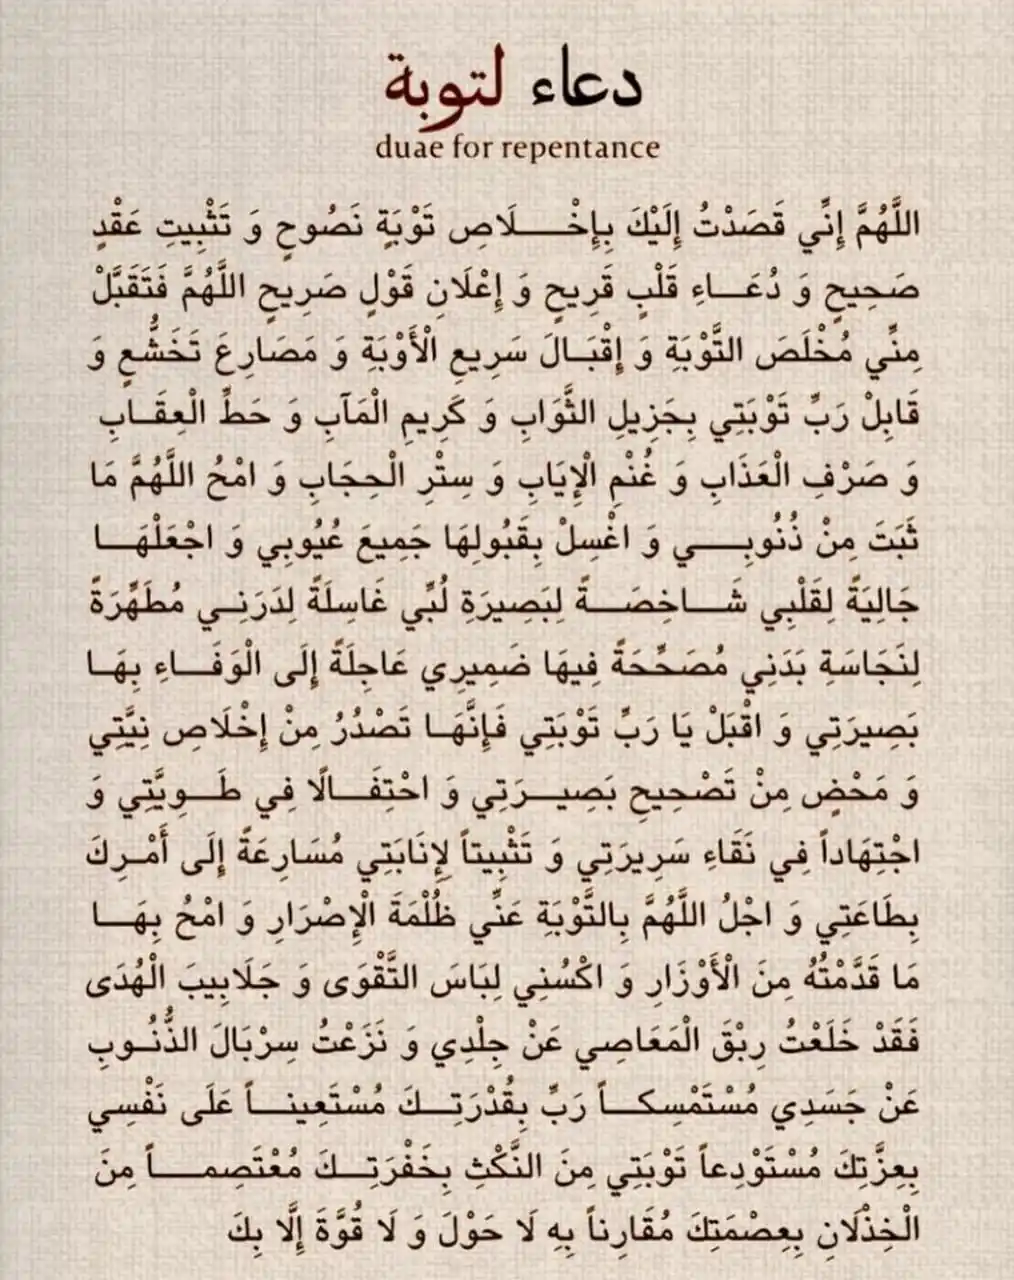 دعاء لتوبة
duae for repentance
اللَّهُمَّ إِنِّي قَصَدْتُ إِلَيْكَ بِإِخْـــــلَاصِ تَوْبَةٍ نَصُوحٍ وَ تَثْبِيتِ عَقْدٍ
صَحِيحٍ وَ دُعَـــاءِ قَلْبٍ قَرِيحٍ وَ إِعْلَانِ قَوْلٍ صَرِيحٍ اللَّهُمَّ فَتَقَبَّلْ
مِنِّي مُخْلَصَ التَّوْبَةِ وَ إِقْبَـالَ سَرِيعِ الْأَوْبَةِ وَ مَصَارِعَ تَخَشُّعٍ وَ
قَابِلْ رَبِّ تَوْبَتِي بِجَزِيلِ الثَّوَابِ وَ كَرِيمِ الْمَآبِ وَ حَطِّ الْعِقَـابِ
وَ صَرْفِ الْعَذَابِ وَ غُنْمِ الْإِيَابِ وَ سِتْرِ الْحِجَابِ وَ امْحُ اللَّهُمَّ مَا
ثَبَتَ مِنْ ذُنُوبِـــــي وَ اغْسِلْ بِقَبُولِهَا جَمِيعَ عُيُوبِي وَ اجْعَلْهَـــا
جَالِيَةً لِقَلْبِي شَـــاخِصَـــةً لِبَصِيرَةِ لُبِّي غَاسِلَةً لِدَرَنِـي مُطَهِّرَةً
لِنَجَاسَةِ بَدَنِي مُصَحِّحَةً فِيهَا ضَمِيرِي عَاجِلَةً إِلَى الْوَفَـــاءِ بِهَـا
بَصِيرَتِي وَ اقْبَلْ يَا رَبِّ تَوْبَتِي فَإِنَّهَـا تَصْدُرُ مِنْ إِخْلَاصِ نِيَّتِي
وَ مَحْضٍ مِنْ تَصْحِيحِ بَصِيـــرَتِي وَ احْتِفَـــالًا فِي طَـــوِيَّتِي وَ
اجْتِهَاداً فِي نَقَاءِ سَرِيرَتِي وَ تَثْبِيتاً لِإِنَابَتِي مُسَارِعَةً إِلَى أَمْـرِكَ
بِطَاعَتِي وَ اجْلُ اللَّهُمَّ بِالتَّوْبَةِ عَنِّي ظُلْمَةَ الْإِصْرَارِ وَ امْحُ بِهَـــا
مَا قَدَّمْتُهُ مِنَ الْأَوْزَارِ وَ اكْسُنِي لِبَاسَ التَّقْوَى وَ جَلَابِيبَ الْهُدَى
فَقَدْ خَلَعْتُ رِبْقَ الْمَعَاصِي عَنْ جِلْدِي وَ نَزَعْتُ سِرْبَالَ الذُّنُـوبِ
عَنْ جَسَدِي مُسْتَمْسِكـــاً رَبِّ بِقُدْرَتِـــكَ مُسْتَعِينـــاً عَلَى نَفْسِي
بِعِزَّتِكَ مُسْتَوْدِعاً تَوْبَتِي مِنَ النَّكْثِ بِخَفْرَتِـــكَ مُعْتَصِمـــاً مِنَ
الْخِذْلَانِ بِعِصْمَتِكَ مُقَارِناً بِهِ لَا حَوْلَ وَ لَا قُوَّةَ إِلَّا بِكَ